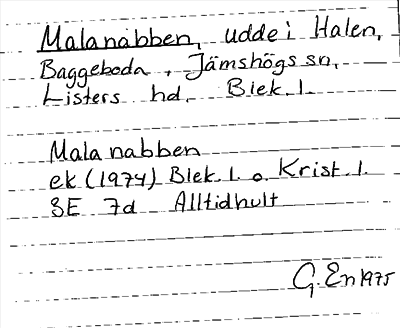 Malanabben, udde i Halen,
Baggeboda, Jämshögs sn,
Listers hd, Blek. l.
Malanabben
ek (1974) Blek. l. o. Krist. l.
3E 7d Alltidhult
G. En 1975